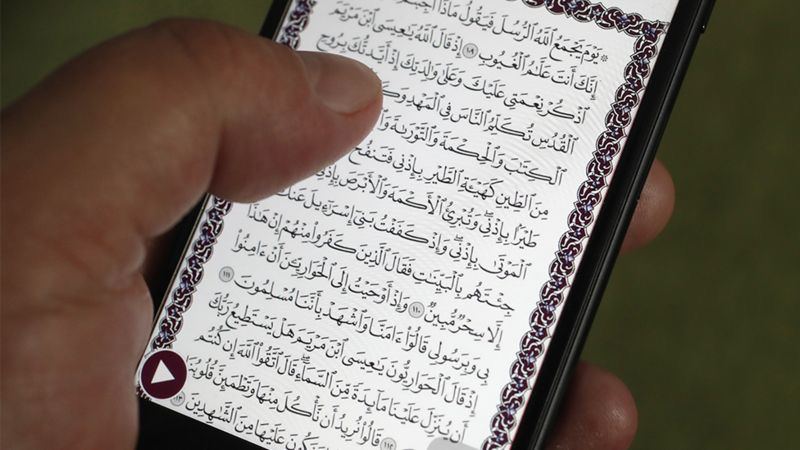 ۞ يَوۡمَ يَجۡمَعُ ٱللَّهُ ٱلرُّسُلَ فَيَقُولُ مَاذَآ
إِنَّكَ أَنتَ عَلَّٰمُ ٱلۡغُيُوبِ ١٠٩ إِذۡ قَالَ ٱللَّهُ يَٰعِيسَى ٱبۡنَ مَرۡيَمَ
ٱذۡكُرۡ نِعۡمَتِي عَلَيۡكَ وَعَلَىٰ وَٰلِدَتِكَ إِذۡ أَيَّدتُّكَ بِرُوحِ
ٱلۡقُدُسِ تُكَلِّمُ ٱلنَّاسَ فِي ٱلۡمَهۡدِ
ٱلۡكِتَٰبَ وَٱلۡحِكۡمَةَ وَٱلتَّوۡرَىٰةَ
مِنَ ٱلطِّينِ كَهَيۡـَٔةِ ٱلطَّيۡرِ بِإِذۡنِي فَتَنفُخُ
طَيۡرَۢا بِإِذۡنِيۖ وَتُبۡرِئُ ٱلۡأَكۡمَهَ وَٱلۡأَبۡرَصَ بِإِذۡنِيۖ
ٱلۡمَوۡتَىٰ بِإِذۡنِيۖ وَإِذۡ كَفَفۡتُ بَنِيٓ إِسۡرَٰٓءِيلَ عَنكَ
جِئۡتَهُم بِٱلۡبَيِّنَٰتِ فَقَالَ ٱلَّذِينَ كَفَرُواْ مِنۡهُمۡ إِنۡ هَٰذَآ
إِلَّا سِحۡرٞ مُّبِينٞ ١١٠ وَإِذۡ أَوۡحَيۡتُ إِلَى ٱلۡحَوَارِيِّـۧنَ أَنۡ ءَامِنُواْ
بِي وَبِرَسُولِي قَالُوٓاْ ءَامَنَّا وَٱشۡهَدۡ بِأَنَّنَا مُسۡلِمُونَ ١١١
إِذۡ قَالَ ٱلۡحَوَارِيُّونَ يَٰعِيسَى ٱبۡنَ مَرۡيَمَ هَلۡ يَسۡتَطِيعُ رَبُّكَ
أَن يُنَزِّلَ عَلَيۡنَا مَآئِدَةٗ مِّنَ ٱلسَّمَآءِۖ قَالَ ٱتَّقُواْ ٱللَّهَ إِن كُنتُم
١١٢ قَالُواْ نُرِيدُ أَن نَّأۡكُلَ مِنۡهَا وَتَطۡمَئِنَّ قُلُوبُنَا
وَنَكُونَ عَلَيۡهَا مِنَ ٱلشَّٰهِدِينَ ١١٣